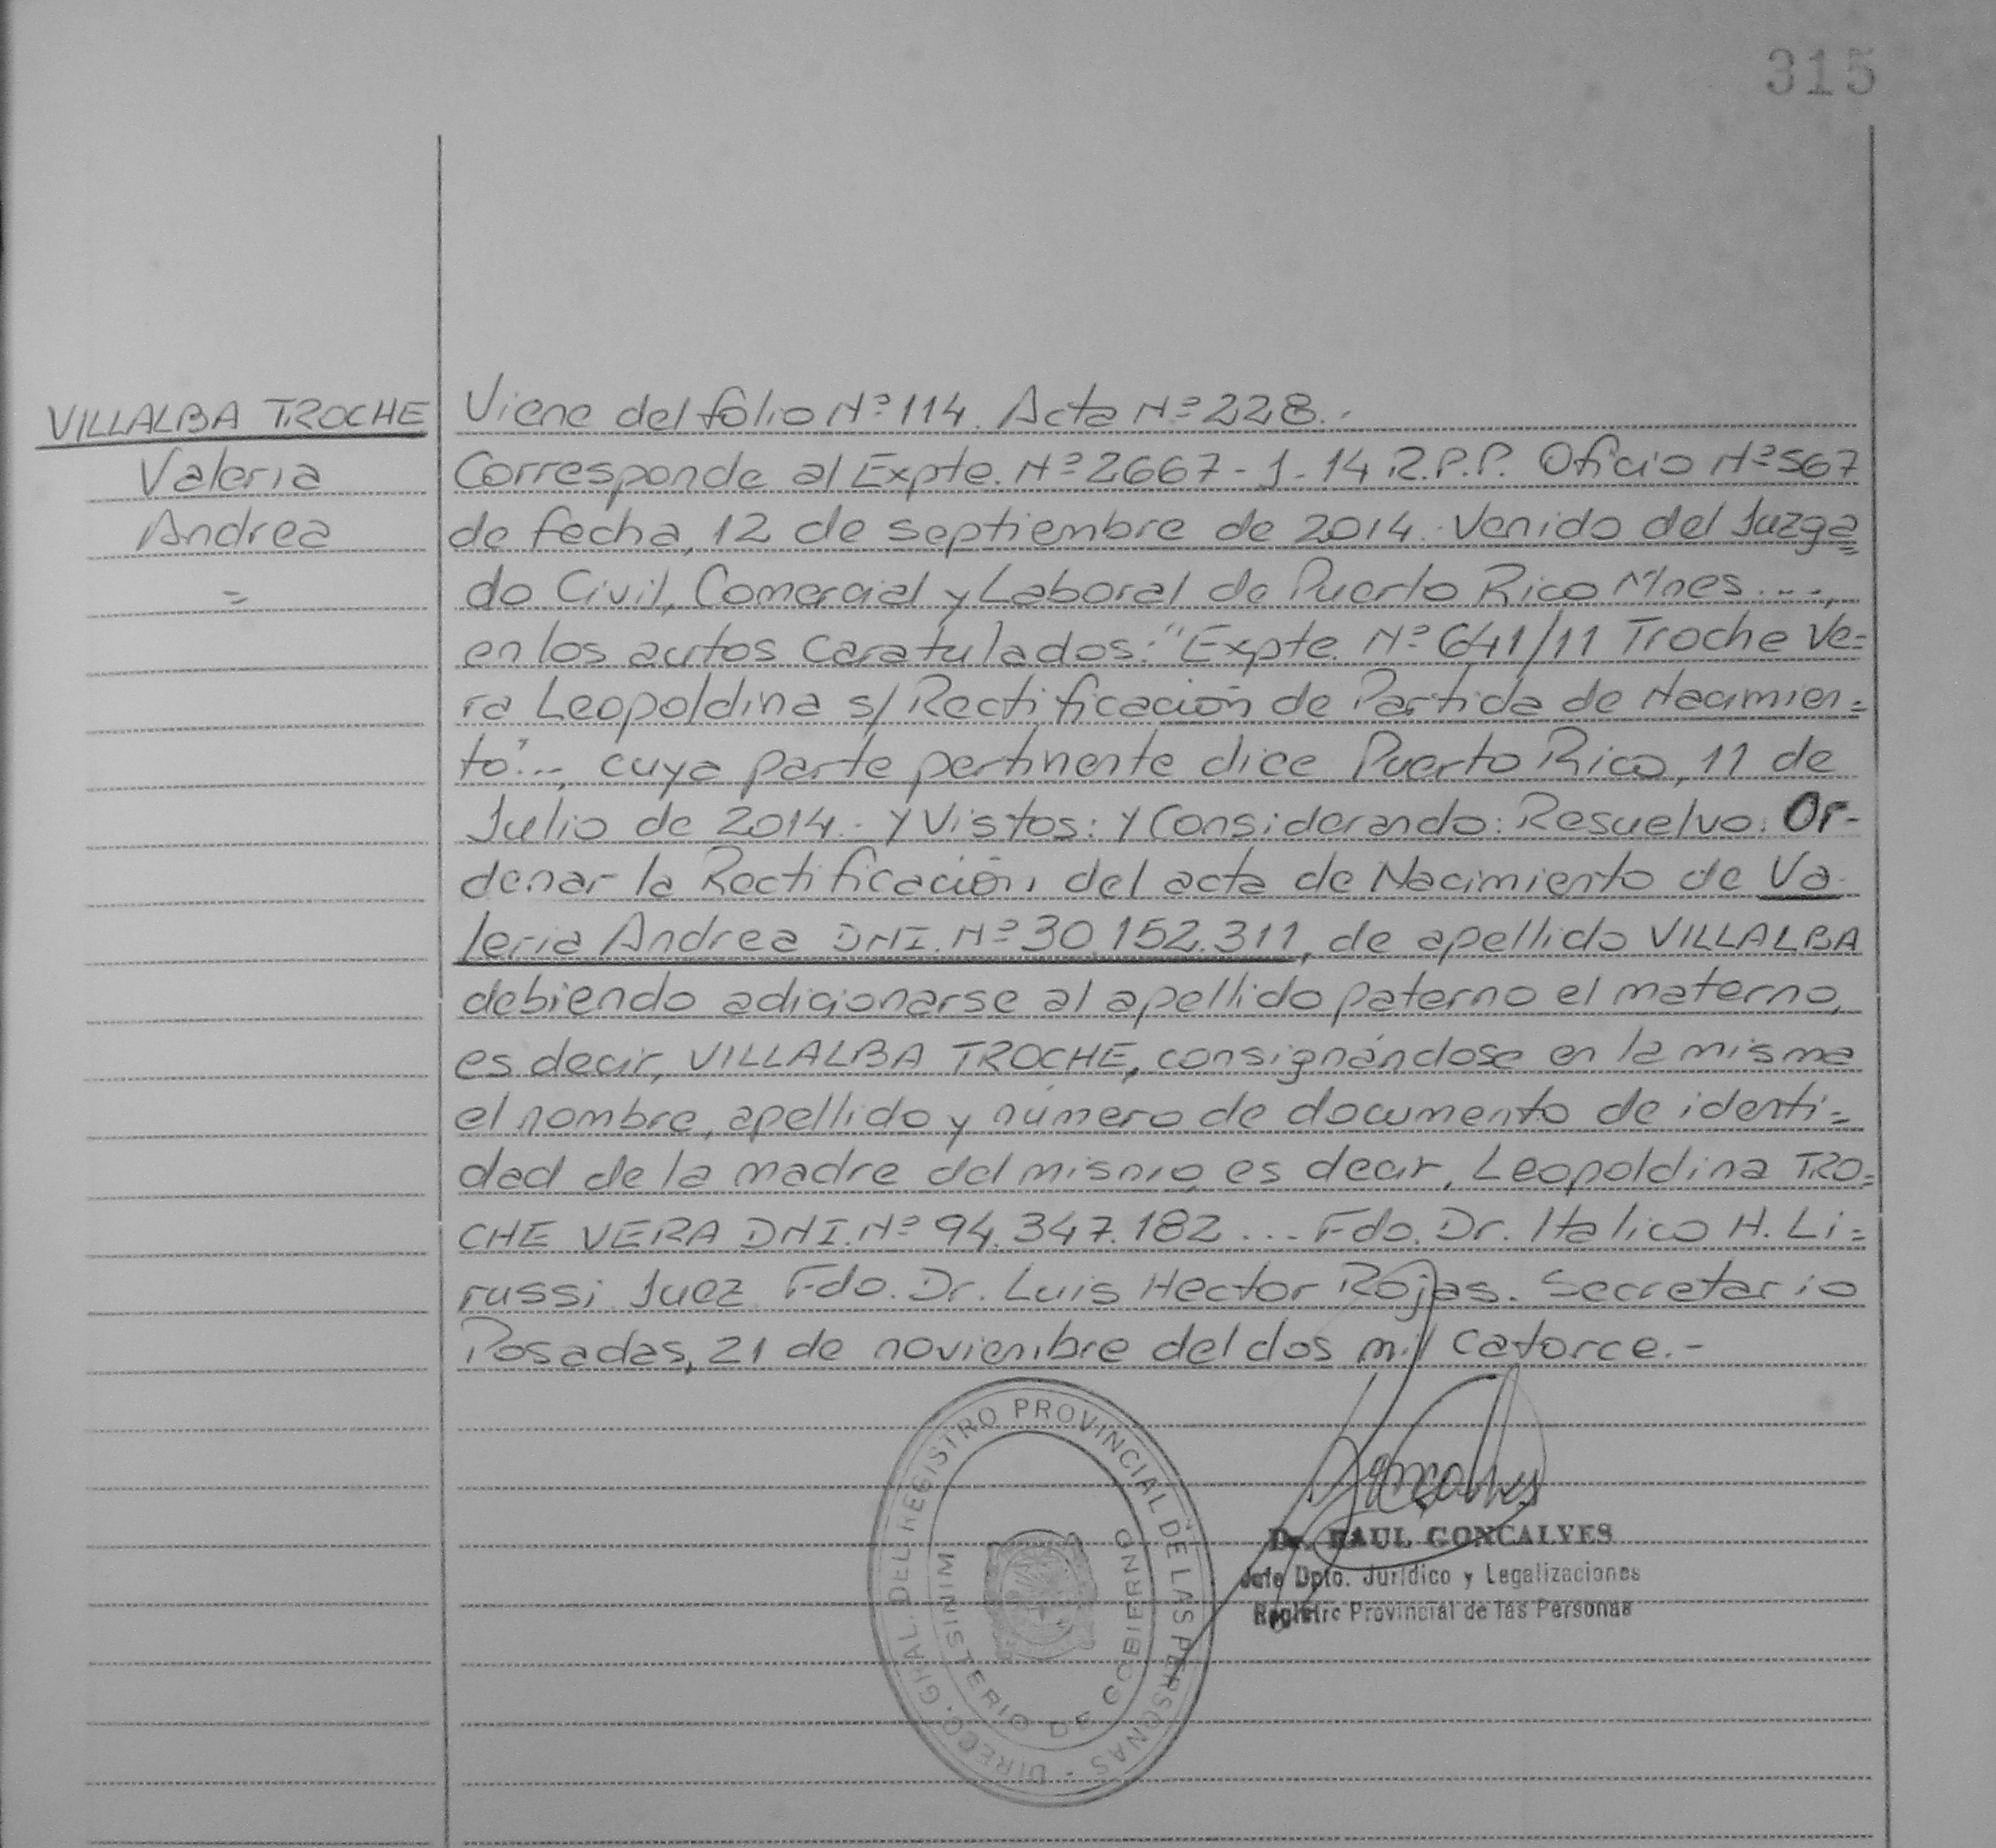 315
VILLALBA TROCHE
Valeria
Andrea
=
Viene del folio Nº 114. Acta Nº 228.-
Corresponde al Expte. Nº 2667-J-14 R.P.P. Oficio Nº 567
de fecha, 12 de septiembre de 2014. Venido del Juzga=
do Civil, Comercial y Laboral de Puerto Rico Mnes...,
en los autos caratulados: "Expte. Nº 641/11 Troche Ve=
ra Leopoldina s/ Rectificación de Partida de Nacimien=
to"..., cuya parte pertinente dice Puerto Rico, 11 de
Julio de 2014.- Y Vistos: Y Considerando: Resuelvo: Or-
denar la Rectificación, del acta de Nacimiento de Va
leria Andrea DNI. Nº 30.152.311, de apellido VILLALBA
debiendo adicionarse al apellido paterno el materno,
es decir, VILLALBA TROCHE, consignándose en la misma
el nombre, apellido y número de documento de identi=
dad de la madre del mismo, es decir, Leopoldina TRO=
CHE VERA DNI. Nº 94.347.182... Fdo. Dr. Italico H. Li=
russi Juez Fdo. Dr. Luis Hector Rojas. Secretario
Posadas, 21 de noviembre del dos mil catorce.-
DIRECC. GRAL. DEL REGISTRO PROVINCIAL DE LAS PERSONAS -
MINISTERIO DE GOBIERNO
Dr. RAUL GONCALVES
Jefe Dpto. Jurídico y Legalizaciones
Registro Provincial de las Personas